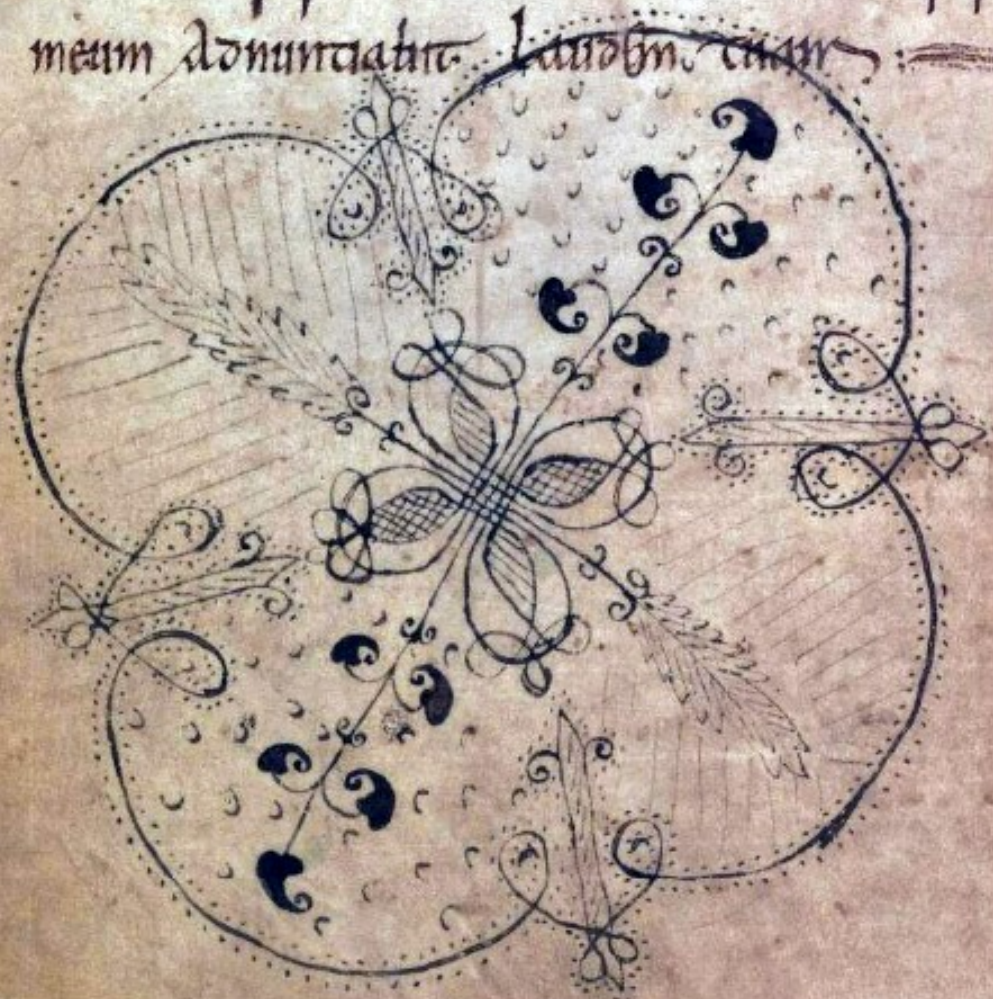 meum adnuntiabit laudem tuam